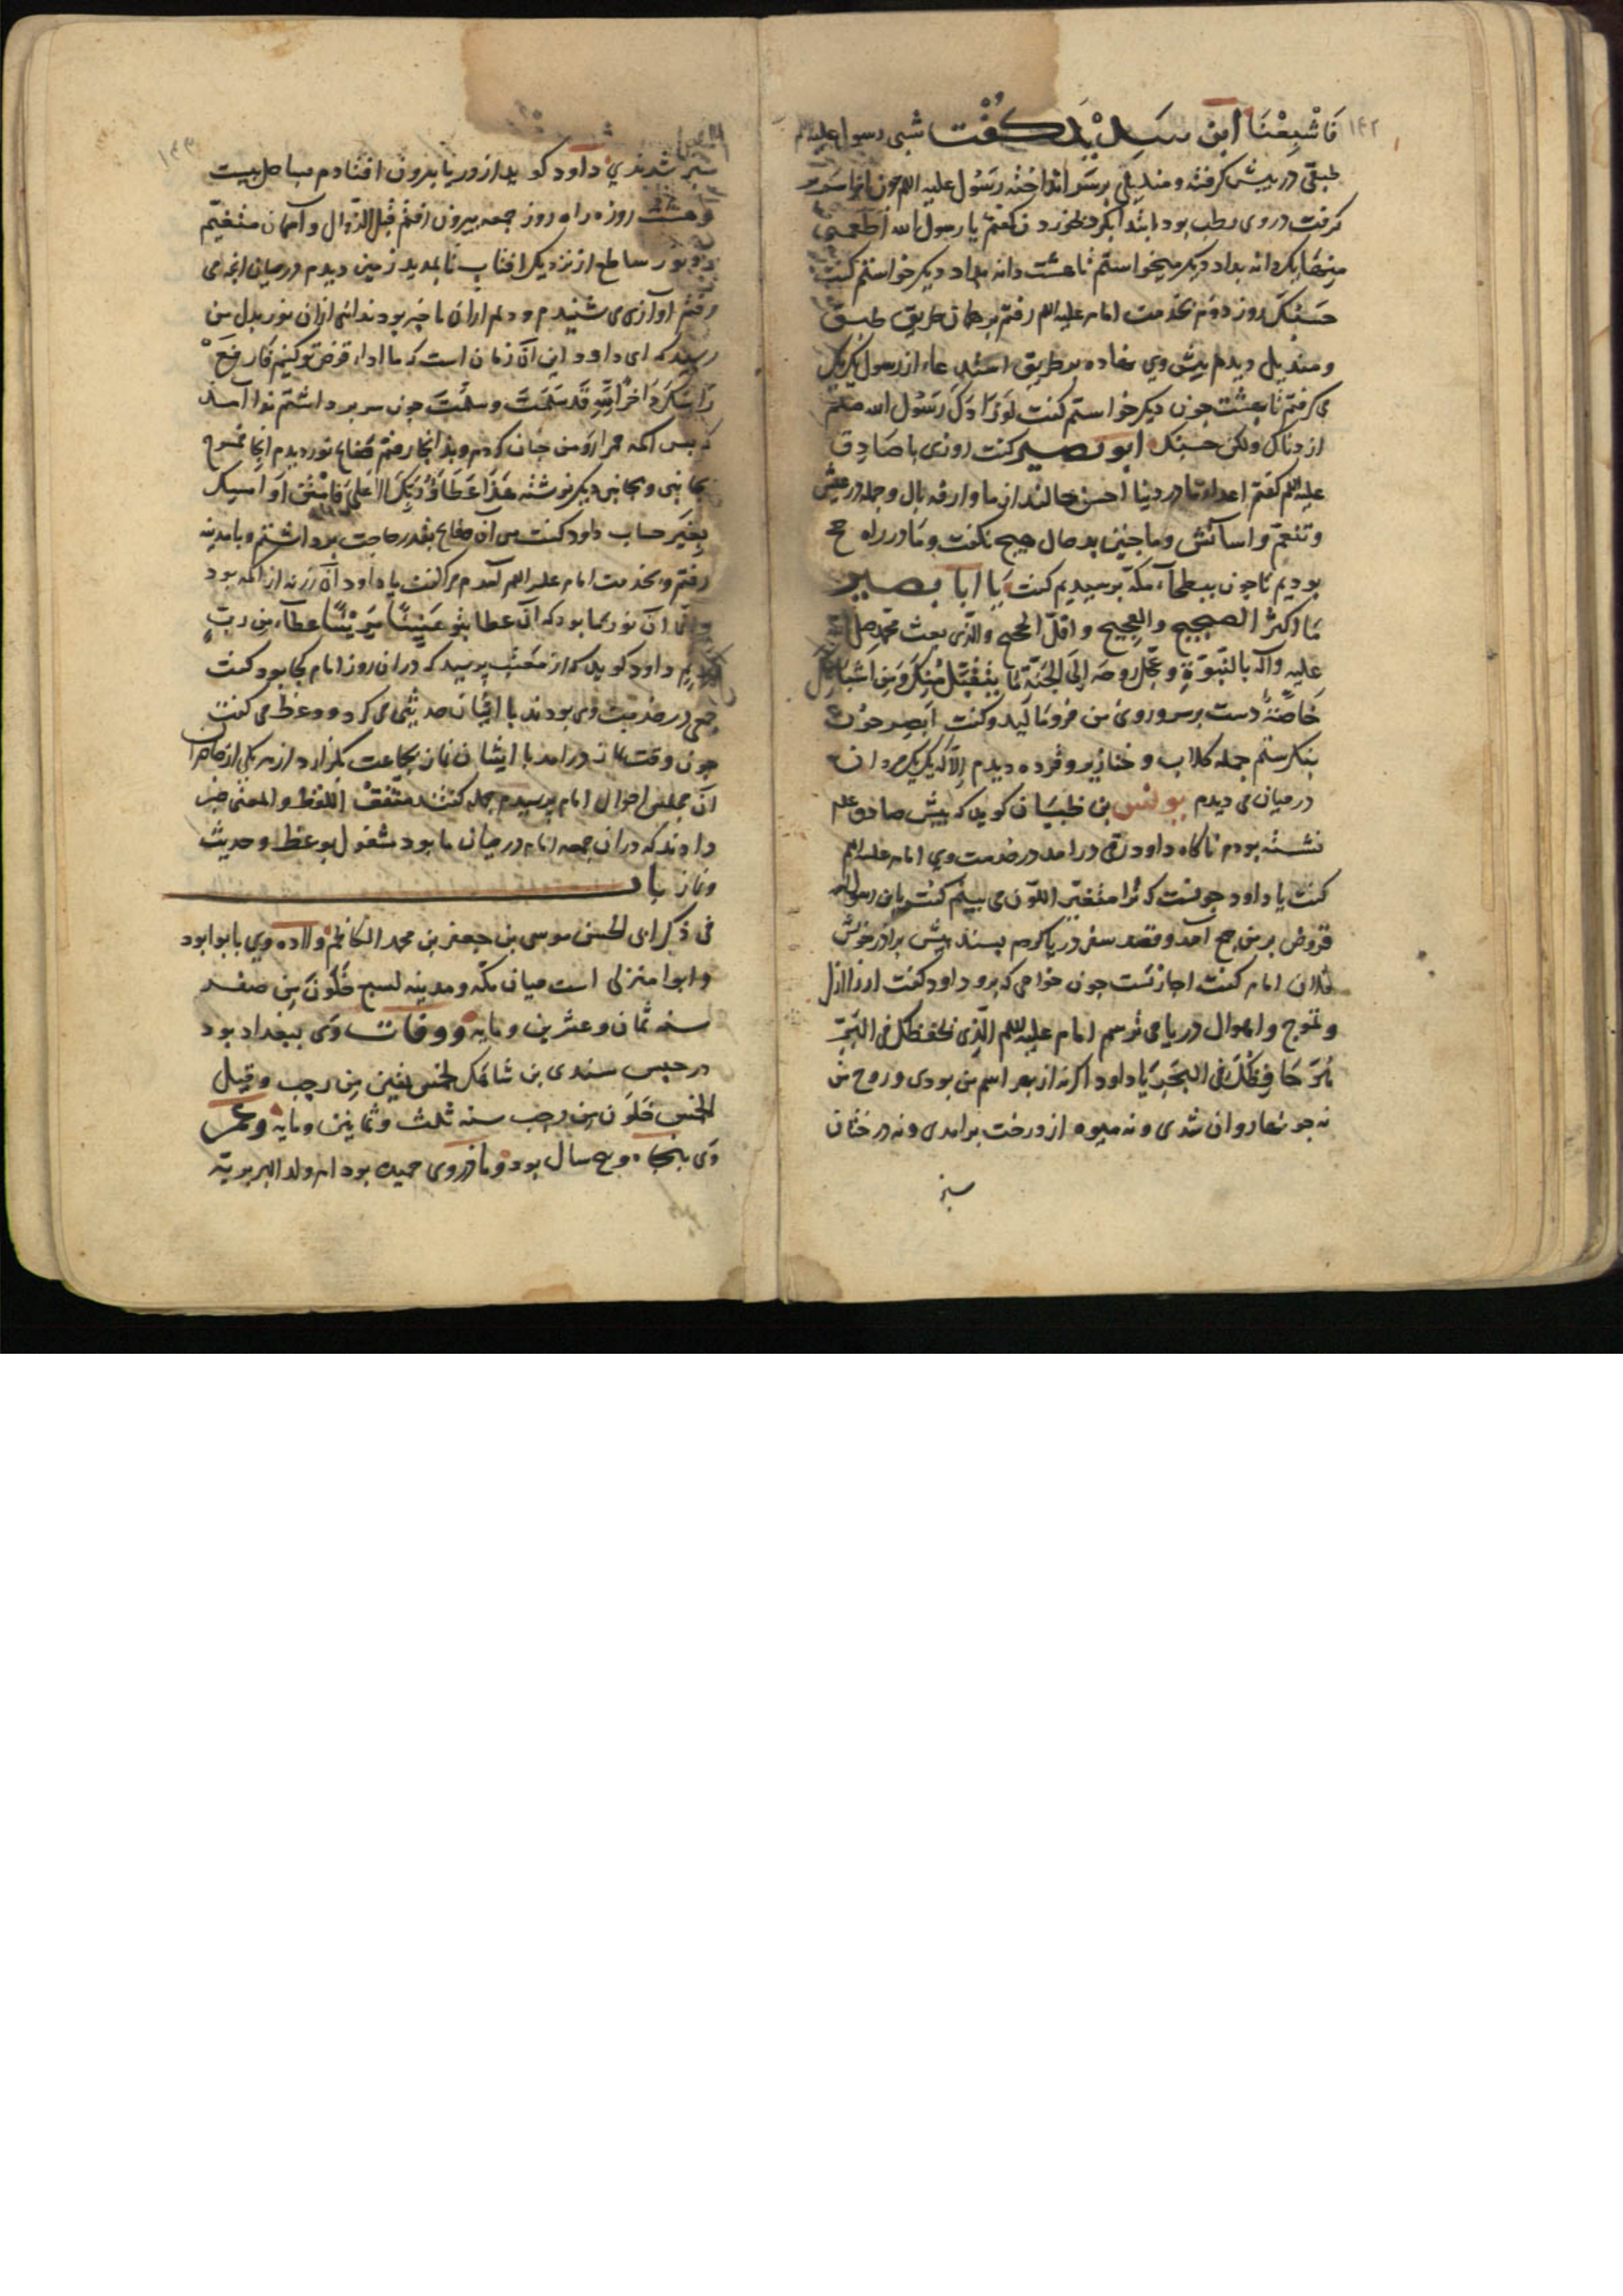 ۱۴۲
فَاشْبِعْنَا ابن سَدِیْد کُفْت شبی رسول علیه
طبقی در پیش کرفته و مندیلی بر سر انداخته رسول علیه السلام چون
کرفت در وی رطب بود ابتدا بکرد بخوردن کفتم یا رسول الله اَطعمنی
مِنهَا یکدانه بداد دیکر میخواستم تا هشت دانه بداد دیکر خواستم کفت
حَسْبُکَ روز دوم بخدمت امام علیه السلام رفتم بر همان طریق طبق
و مندیل دیدم پیش وی نهاده بر طریق از رسول یک یک
می کرفتم تا هشت چون دیکر خواستم کفت لَو زَادَکَ رَسُول الله صلعم
ازدناک ولکن حسبک ابو بصیر کفت روزی با صَادِق
علیه السلم کفتم اعداء ما در دنیا احسن حالند از ما وارفه بال و جمله در عیش
و تنعم و اسآئش و ما چنین بد حال هیچ نکفت و ما در راه حج
بودیم تا چون ببطحآء مکّه برسیدیم کفت یَا ابا بصیر
مَا اکثر الضجیج والعجیج و اقلّ الحجیج والذی بعث محمد صلی الله
علیه وآله بالنّبوّة و عجّل روحه اِلَی الجنّة مَا یتقبّل اِلّا مِنکَ وَمِن اشباهک
خَاصّةً دست بر سر و روی من فرو مَالید و کفت اَبصِر چون
بنکرستم جمله کلاب و خنازیر و قرده دیدم اِلاّ که یک یک مردان
در میان می دیدم یونس بن ظبیَان کوید که پیش صادق علم
نشسته بودم ناکاه داود رقی درامد در خدمت وی امام علیه السلم
کفت یا داود چونست که تُرا متغیّر اللّون می بینم کفت یا بن رسول الله
قروض بر من جمع آمد و قصد سفر دریا کردم بسند پیش برادر خویش
فلان امام کفت اجازتست چون خواهی که برو داود کفت از زلازل
و تموّج و اهوال دریا می ترسم امام علیه السلم الّذی یحفظک فی البَرّ
هُوَ حَافِظُکَ فی البَحْرِ یَا داود اکر نه از بهر اسم من بودی و روح من
نه جویها روان شدی و نه میوه از درخت برامدی و نه درختان
سبز
۱۴۳
سبز شدندی داود کوید از دریا بیرون افتادم بساحل بیست
و هشت روزه راه روز جمعه بیرون رفتم قبل الزّوال و آسمان متغیّم
نور ساطع از نزدیک افتاب تا بجدید زمین دیدم در میان ابخه ی
رفتم آوازی می شنیدم و دلم ازان با خبر بود ندائی ازان نور بدل من
رسید که ای داود این آن زمان است که ما اداء قرض تو کنیم فَارفَعْ
رَاسَکَ قَد سَلِمتَ و سَلمتَ چون سر برداشتم ندا آمد
که پس اکمه حمرا رو من چنان کردم و بدانجا رفتم صفایح نور دیدم انجا ممسوح
بجانبی و بجانبی دیکر نوشته هَذَا عَطَاؤُنَا فَامْنُنْ اَو اَمسِک
بغَیرِ حساب داود کفت من آن صفایح بقدر حاجت برداشتم و با مدینه
رفتم و بخدمت امام علیه السلم آمدم مرا کفت یا داود آن زر نه از اکمه بود
و آن نور ما بود که آن عطا بتو هَنِیئًا مَرِیئًا عطآء مِن ربٍّ
کریم داود کوید که از معتّب پرسید که دران روز امام کجا بود کفت
جمعی در خدمت وی بودند با ایشان حدیثی می کرد و وعظ می کفت
چون وقت نماز درامد با ایشان نماز بجماعت بکزارد از هر یکی از حاضران
آن مجلس احوال امام پرسیدم جمله کفتند متّفقْ اللفظ والمعنی خبر
دادند که دران جمعه امام در میان ما بود مشغول بوعظ و حدیث
و نماز باب
فی ذکر ابی الحسن موسی بن جعفر بن محمد الکاظم ولاده وی بابوا بود
و ابوا منزلی است میان مکّه و مدینه لسبع خَلَوْنَ مِن صفر
سنه ثمان و عشرین و مایه و وفات وی ببغداد بود
در حبس سندی بن شاهک لخمس بقین مِن رجب و قیل
لخمس خَلَون مِن رجب سنه ثلث و ثمانین و مایه و عمر
وی پنجاه و پنج سال بود و مادر وی حمیده بود ام ولد البربریّه